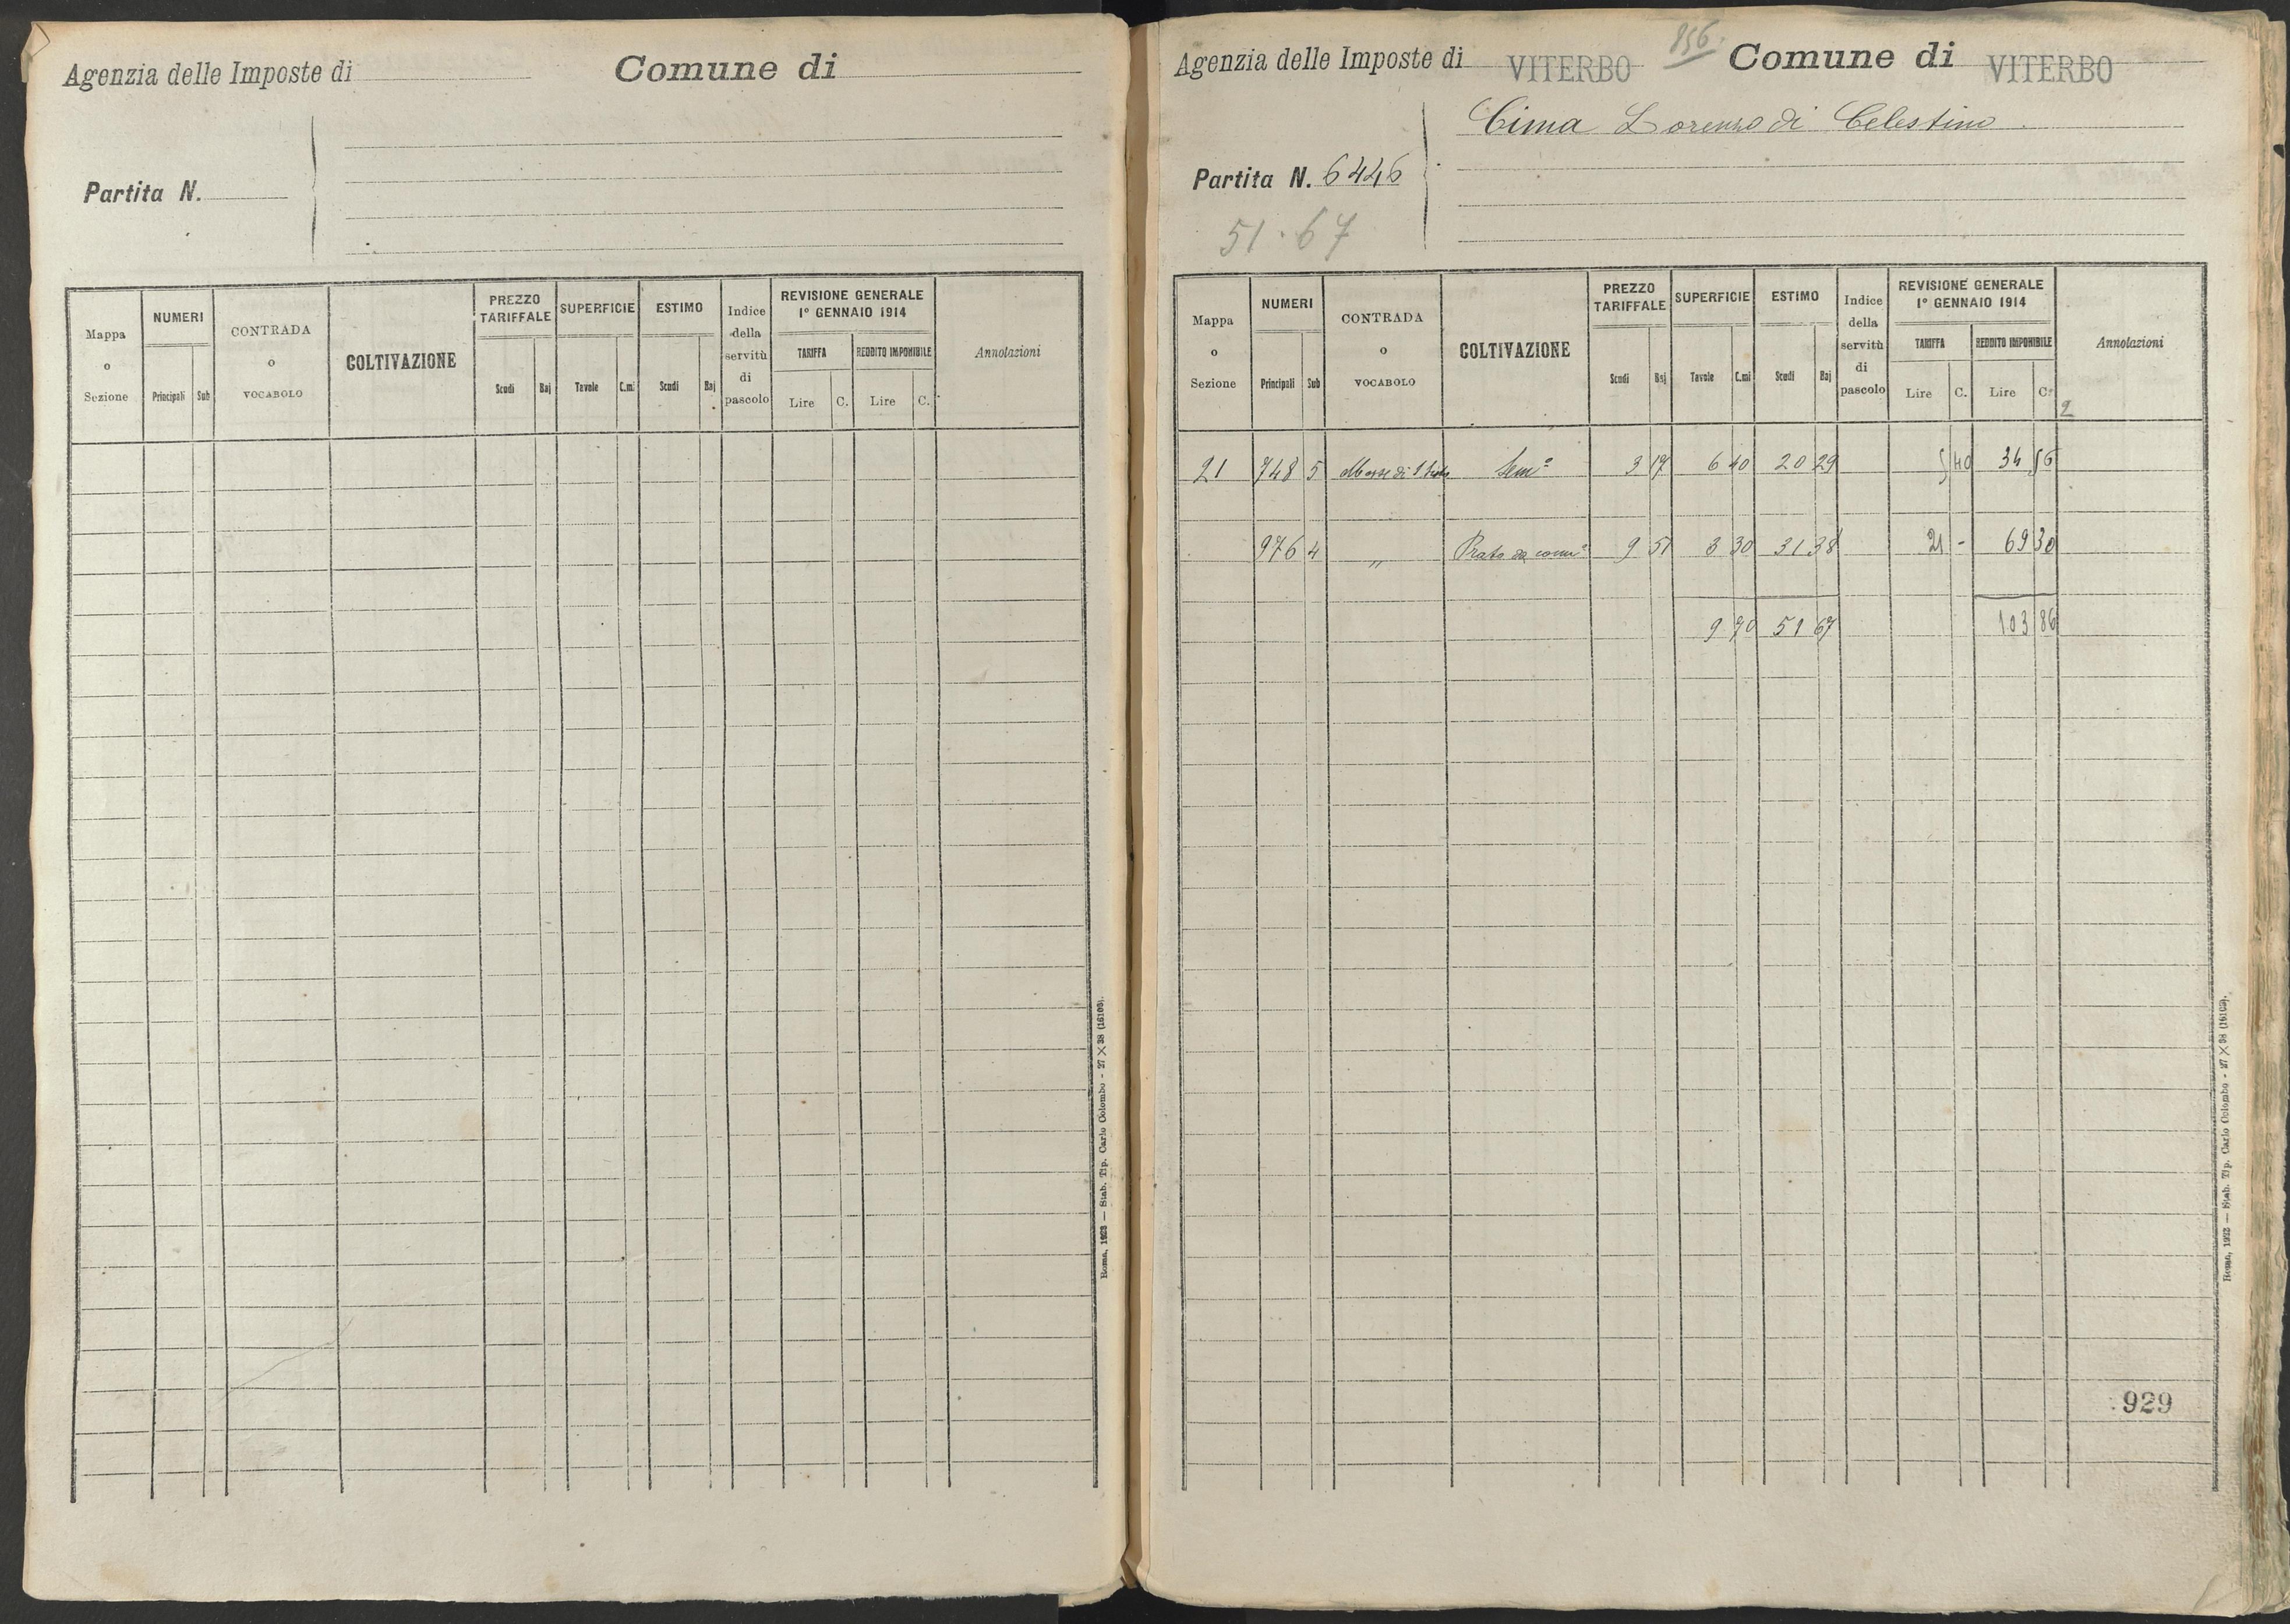 Agenzia delle Imposte di Comune di
Partita N.
Mappa o Sezione NUMERI Principali Sub CONTRADA o VOCABOLO COLTIVAZIONE PREZZO TARIFFALE Scudi Baj SUPERFICIE Tavole C.mi ESTIMO Scudi Baj Indice della servitù di pascolo REVISIONE GENERALE 1° GENNAIO 1914 TARIFFA Lire C. REDDITO IMPONIBILE Lire C. Annotazioni
Roma, 1923 — Stab. Tip. Carlo Colombo - 27 X 38 (16109).
856.
Agenzia delle Imposte di VITERBO Comune di VITERBO
Cima Lorenzo di Celestino
Partita N. 6446
51.67
Mappa o Sezione NUMERI Principali Sub CONTRADA o VOCABOLO COLTIVAZIONE PREZZO TARIFFALE Scudi Baj SUPERFICIE Tavole C.mi ESTIMO Scudi Baj Indice della servitù di pascolo REVISIONE GENERALE 1° GENNAIO 1914 TARIFFA Lire C. REDDITO IMPONIBILE Lire C. Annotazioni
2
21 748 5 di Sem° 3 17 6 40 20 29 5 40 34 56
976 4 " Prato da 9 51 3 30 31 38 21 - 69 30
9 70 51 67 103 86
929
Roma, 1923 — Stab. Tip. Carlo Colombo - 27 X 38 (16109).